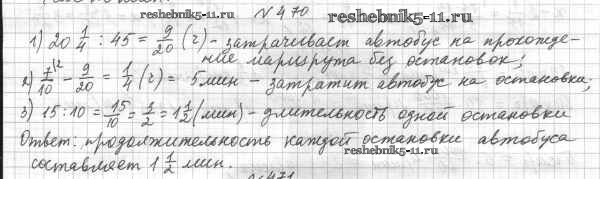 reshebnik5-11.ru № 470 reshebnik5-11.ru
1) 20 1/4 : 45 = 9/20 (ч) - затрачивает автобус на прохожде-
ние маршрута без остановок;
2) 7/10 \2 - 9/20 = 1/4 (ч) = 5 мин - затратит автобус на остановка;
3) 15 : 10 = 15/10 = 3/2 = 1 1/2 (мин) - длительность одной остановки
Ответ: продолжительность каждой остановки автобуса
составляет 1 1/2 мин. reshebnik5-11.ru
№ 471